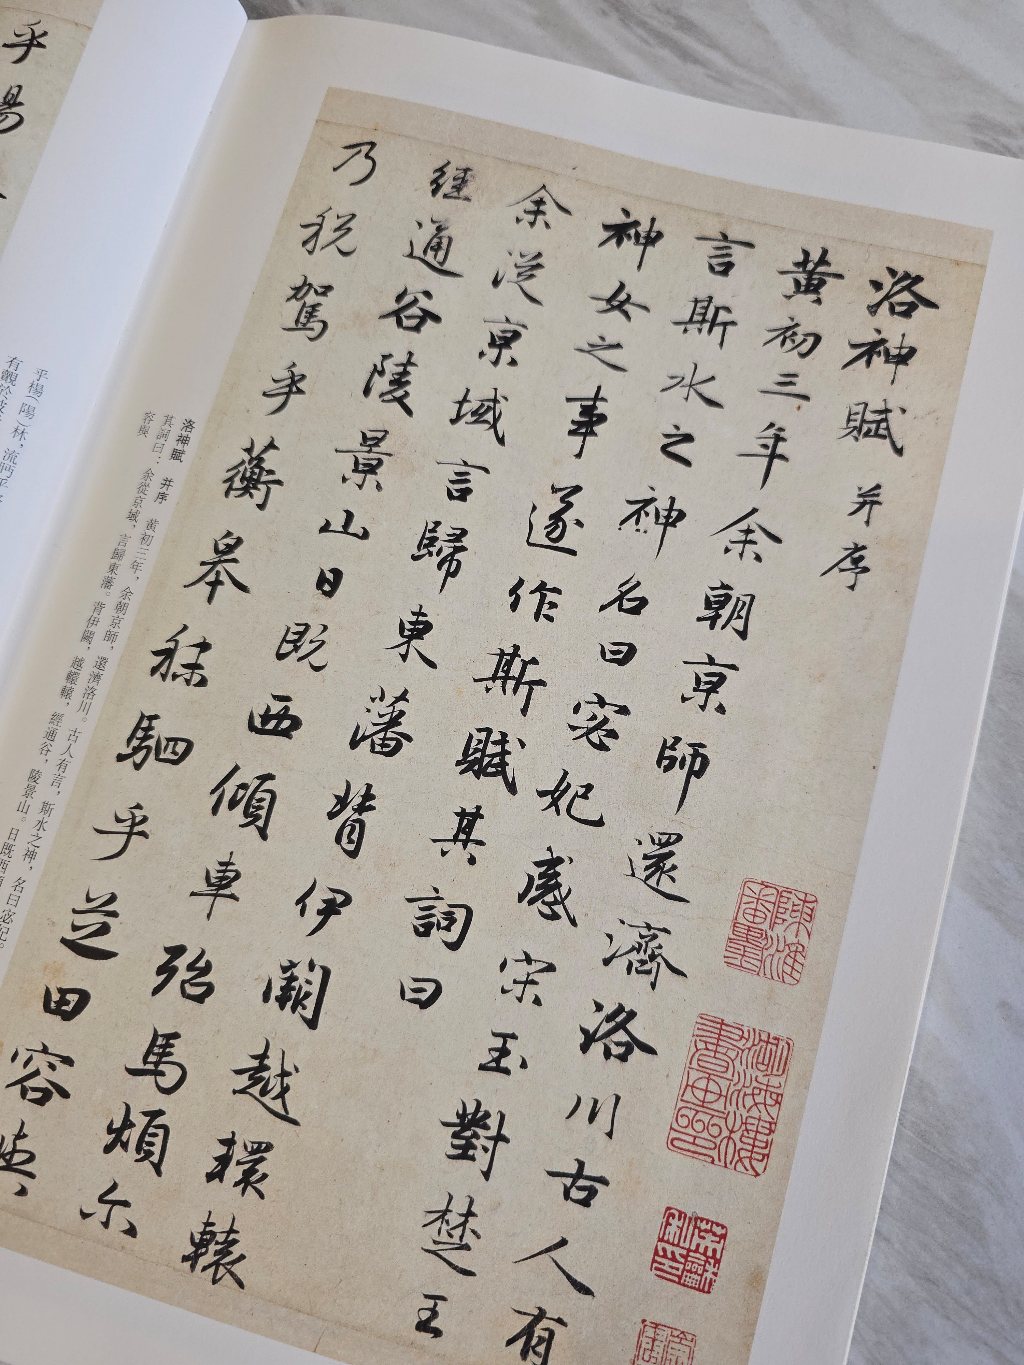 洛神賦 并序
黃初三年余朝亰師還濟洛川古人有
言斯水之神名曰宓妃感宋玉對楚王
神女之事遂作斯賦其詞曰
余從亰域言歸東藩背伊闕越轘轅
經通谷陵景山日既西傾車殆馬煩尒
乃稅駕乎蘅皋秣駟乎芝田容與
洛神賦 并序 黃初三年，余朝京師，還濟洛川。古人有言，斯水之神，名曰宓妃。
其詞曰：余從京域，言歸東藩。背伊闕，越轘轅，經通谷，陵景山。日既西傾
容與
乎楊
乎楊（陽）林，流眄乎